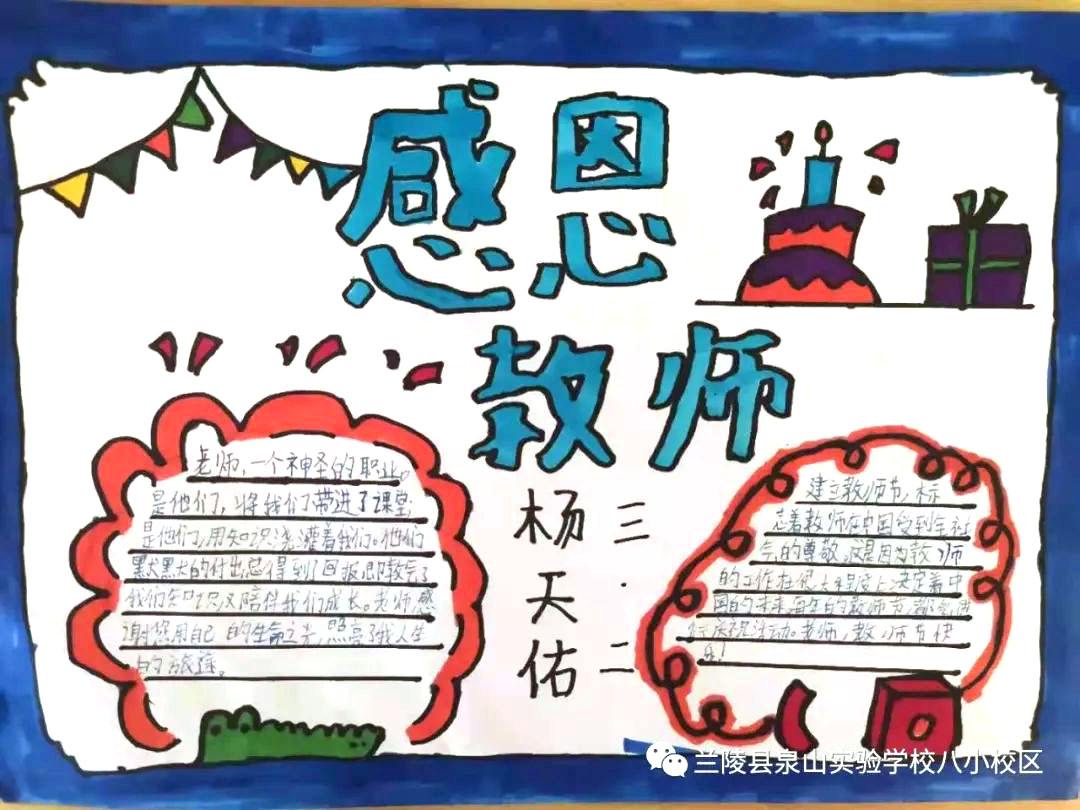 感恩
教师
老师，一个神圣的职业。
是他们，将我们带进了课堂；
是他们，用知识浇灌着我们。他们
默默的付出总得到了回报，即教会了
我们知识，又陪伴我们成长。老师，感
谢您用自己的生命之光，照亮了我人生
的旅途。
杨天佑
三·二
建立教师节，标
志着教师在中国受到全社
会的尊敬。这是因为教师
的工作在很大程度上决定着中
国的未来。每年的教师节，都会进
行庆祝活动。老师，教师节快
乐！
兰陵县泉山实验学校八小校区